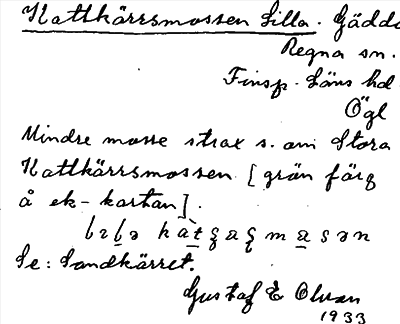 Kattkärrsmossen Lilla. Gäddt
Regna sn.
Finsp. Läns hd
Ögl
Mindre mosse strax s. om Stora
Kattkärrsmossen [grön färg
å ek-kartan].
Se: Sandkärret.
Gustaf E Olsson
1933